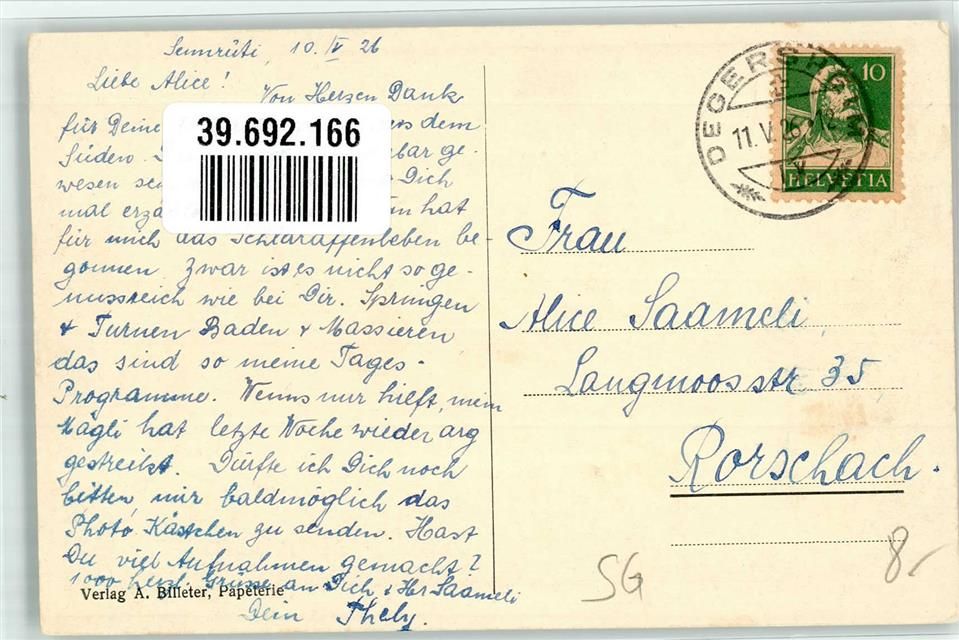 Sennrüti, 10. IV 26
Liebe Alice!
Von Herzen Dank
für Deine dem
Süden. bar ge-
wesen Dich
mal hat
für mich das Schlaraffenleben be
gonnen. Zwar ist es nicht so ge-
nussreich wie bei Dir. Springen
+ Turnen Baden + Massieren
das sind so meine Tages-
Programme. Wenns nur hielft, mein
Mägli hat letzte Woche wieder arg
gestreikt. Dürfte ich Dich noch
bitten mir baldmöglich das
Photo Kästchen zu senden. Hast
Du viel Aufnahmen gemacht?
1000 herzl. Grüsse an Dich + Hr Saameli
Dein Thely.
Verlag A. Billeter, Papeterie
39.692.166
DEGERSHEIM
11. V. 26
10
HELVETIA
Frau
Alice Saameli
Langmoosstr 35
Rorschach.
SG
8.-